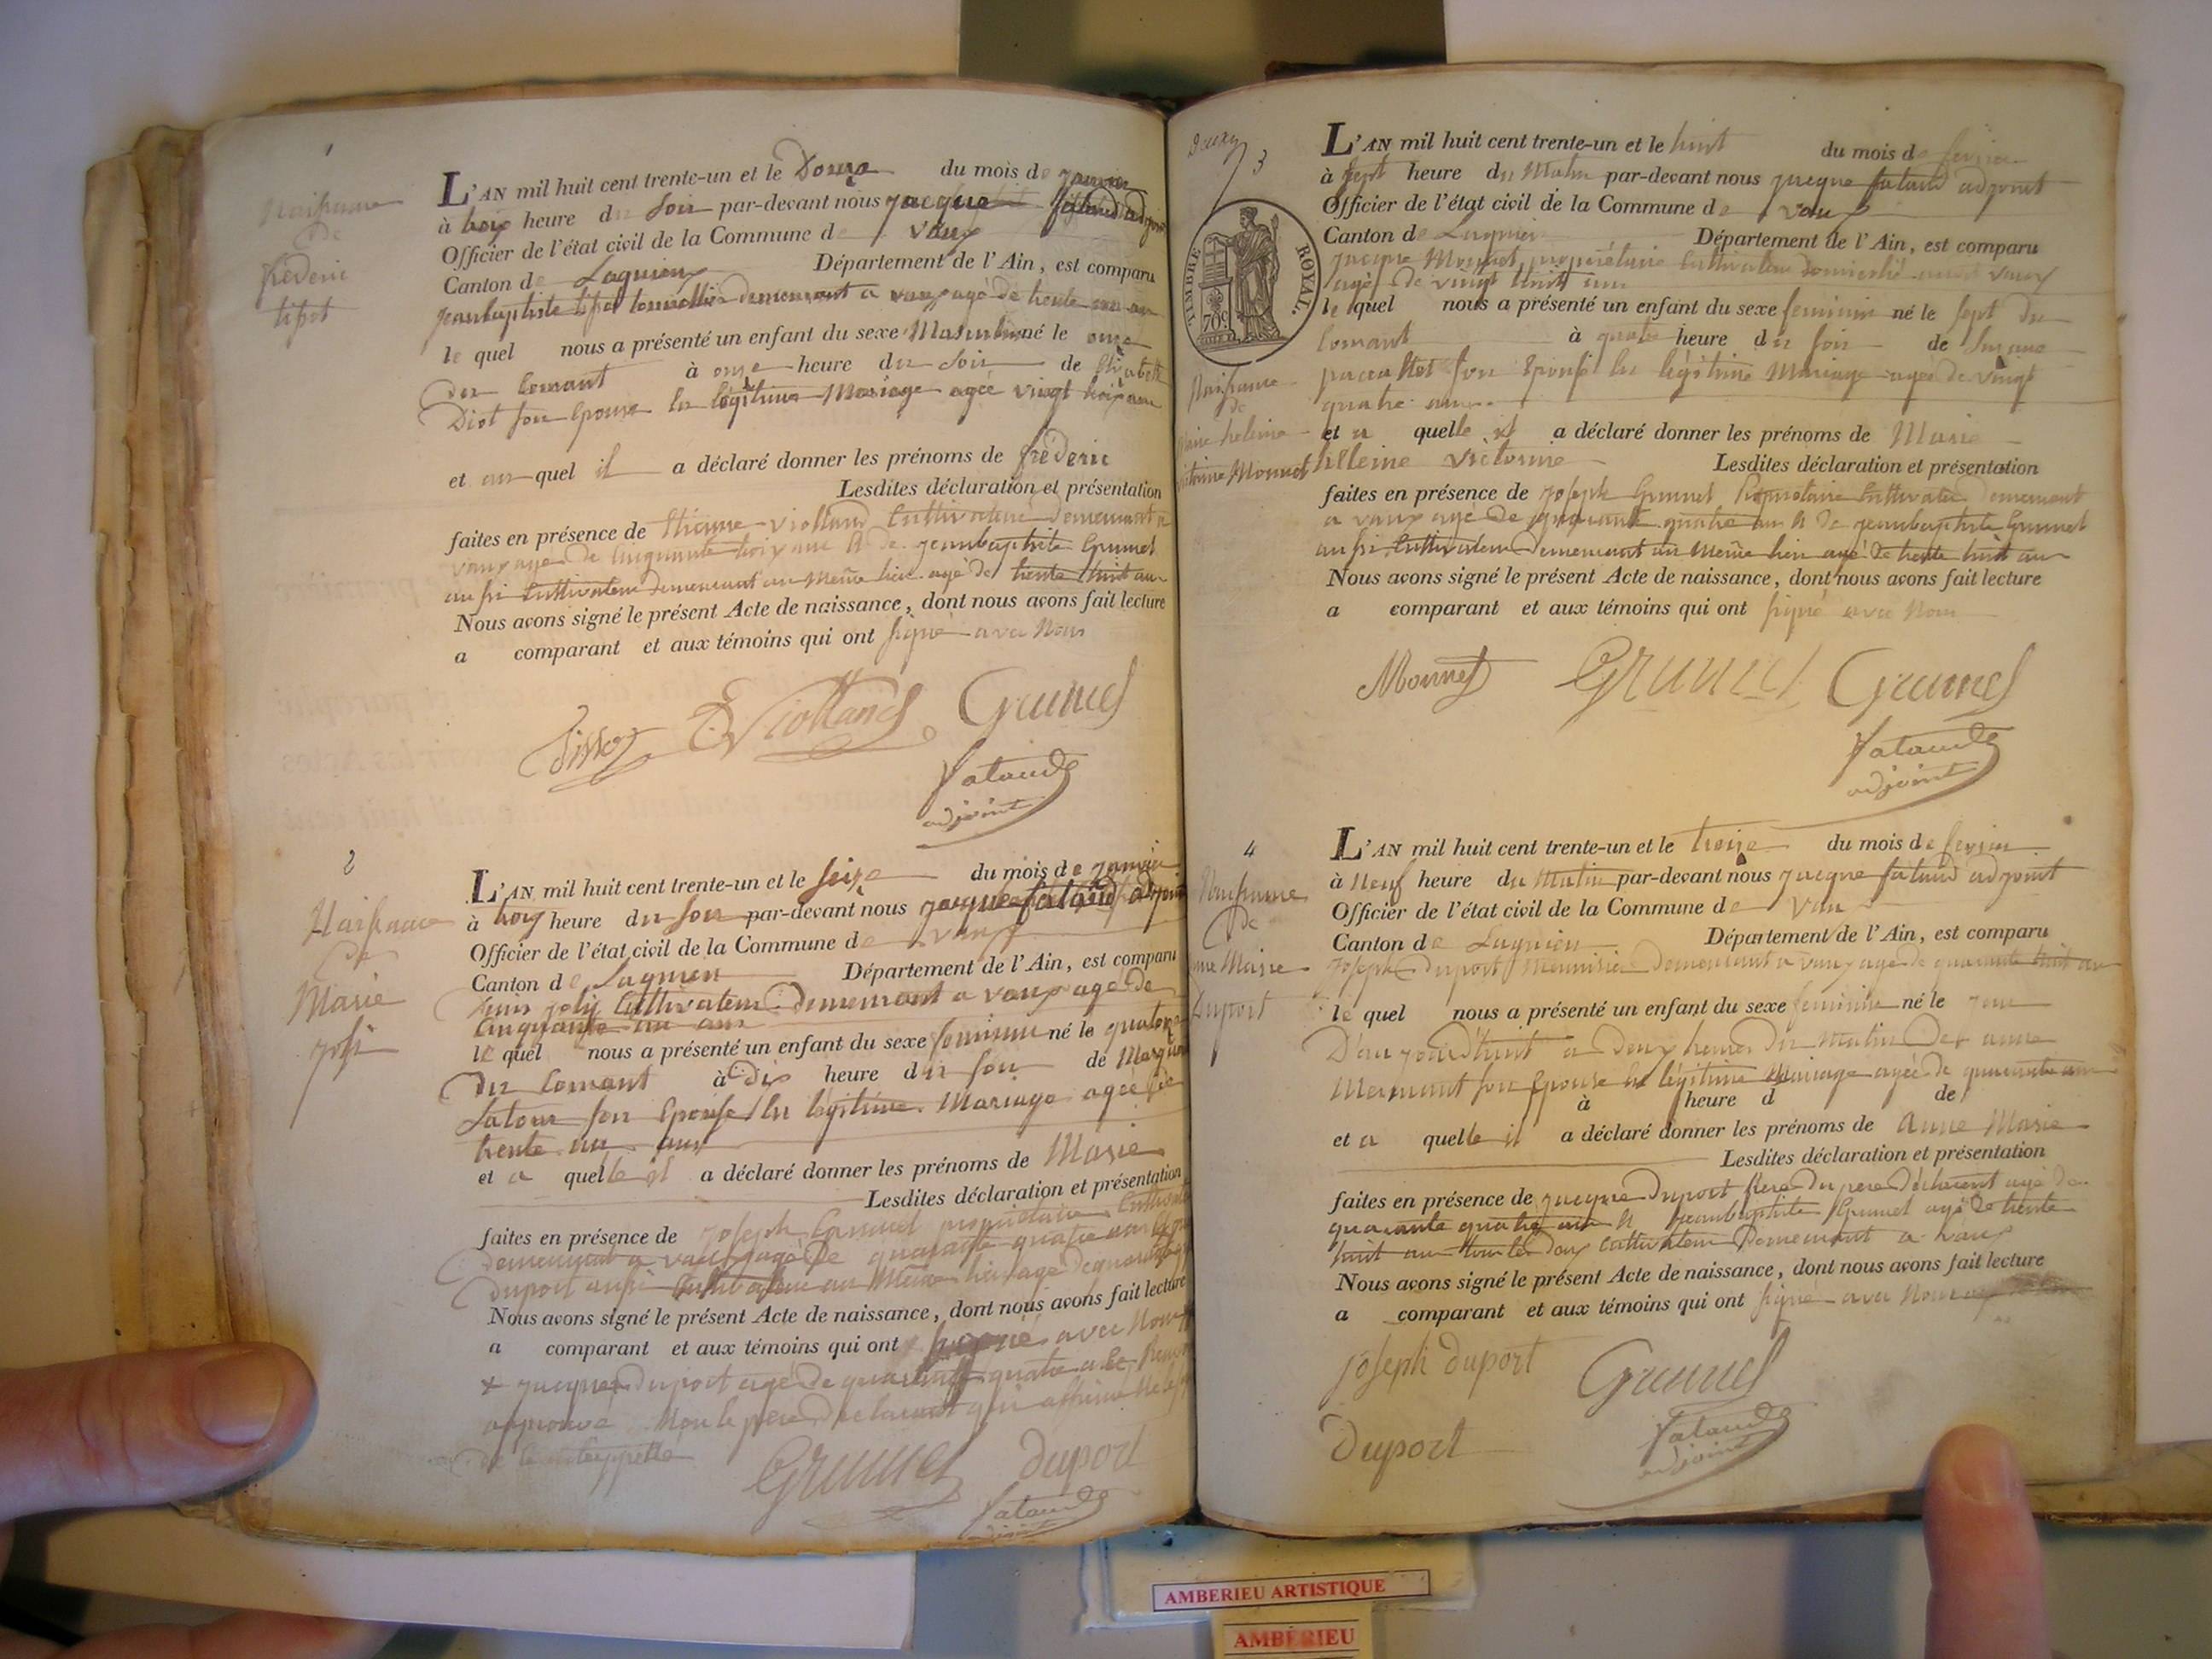 1
Naissance
de
frédéric
tissot
L'AN mil huit cent trente-un et le Douze du mois de janvier
à trois heure du soir par-devant nous jacque fataud adjoint
Officier de l'état civil de la Commune de vaux
Canton de Lagnieu Département de l'Ain, est comparu
jeanbaptiste demeurant a vaux agé de trente un an
le quel nous a présenté un enfant du sexe Masculin né le onze
du Courant à onze heure du soir de
Diot son Epouse en légitime Mariage agée vingt trois ans
et au quel il a déclaré donner les prénoms de frédéric
Lesdites déclaration et présentation
faites en présence de Etienne violland Cultivateur demeurant a
vaux agé de cinquante trois ans et de jeanbaptiste Grumel
aussi Cultivateur demeurant au Même lieu agé de trente huit an
Nous avons signé le présent Acte de naissance, dont nous avons fait lecture
a comparant et aux témoins qui ont signé avec Nous
Tissot E Violland Grumel
fataud
adjoint
2
Naissance
de
Marie
joly
L'AN mil huit cent trente-un et le seize du mois de janvier
à trois heure du soir par-devant nous jacque fataud adjoint
Officier de l'état civil de la Commune de vaux
Canton de Lagnieu Département de l'Ain, est comparu
joly Cultivateur demeurant a vaux agé de
Cinquante un ans
le quel nous a présenté un enfant du sexe feminin né le quatorze
du Courant à dix heure du soir de
Latour son Epouse en légitime Mariage agée de
trente un ans
et a quelle il a déclaré donner les prénoms de Marie
Lesdites déclaration et présentation
faites en présence de joseph Grumel propriétaire Cultivateur
demeurant a vaux agé de quarante quatre ans
duport aussi Cultivateur au Même lieu agé de
Nous avons signé le présent Acte de naissance, dont nous avons fait lecture
a comparant et aux témoins qui ont signé avec Nous
+ jacque duport agé de quarante quatre
approuvé Non le pere déclarant qui
de
Grumel duport
fataud
adjoint
3
TIMBRE ROYAL
70c
Naissance
de
Marie heleine
victorine Monnet
L'AN mil huit cent trente-un et le huit du mois de fevrier
à sept heure du Matin par-devant nous jacque fataud adjoint
Officier de l'état civil de la Commune de vaux
Canton de Lagnieu Département de l'Ain, est comparu
jacque Monnet propriétaire Cultivateur domicilié vaux
agé de vingt huit ans
le quel nous a présenté un enfant du sexe feminin né le sept du
Courant à quatre heure du soir de Susane
son Epouse en légitime Mariage agée de vingt
quatre ans
et a quelle il a déclaré donner les prénoms de Marie
heleine victorine Lesdites déclaration et présentation
faites en présence de joseph Grumel Propriétaire Cultivateur demeurant
a vaux agé de quarante quatre an et de jeanbaptiste Grumel
aussi Cultivateur demeurant au Même lieu agé de trente huit an
Nous avons signé le présent Acte de naissance, dont nous avons fait lecture
a comparant et aux témoins qui ont signé avec Nous
Monnet Grumel Grumel
fataud
adjoint
4
Naissance
de
anne Marie
Duport
L'AN mil huit cent trente-un et le treize du mois de fevrier
à Neuf heure du Matin par-devant nous jacque fataud adjoint
Officier de l'état civil de la Commune de vaux
Canton de Lagnieu Département de l'Ain, est comparu
joseph duport Menuisier demeurant a vaux agé de quarante huit an
le quel nous a présenté un enfant du sexe feminin né le jour
D'aujourd'huit a deux heures du Matin de anne
Mermant son Epouse en légitime Mariage agée de quarante an
à heure d de
et a quelle il a déclaré donner les prénoms de anne Marie
Lesdites déclaration et présentation
faites en présence de jacque duport frere du pere déclarant agé de
quarante quatre an et jeanbaptiste Grumel agé de trente
huit an tous les deux Cultivateur demeurant a vaux
Nous avons signé le présent Acte de naissance, dont nous avons fait lecture
a comparant et aux témoins qui ont signé avec Nous
joseph duport Grumel
Duport fataud
adjoint
AMBERIEU ARTISTIQUE
AMBÉRIEU